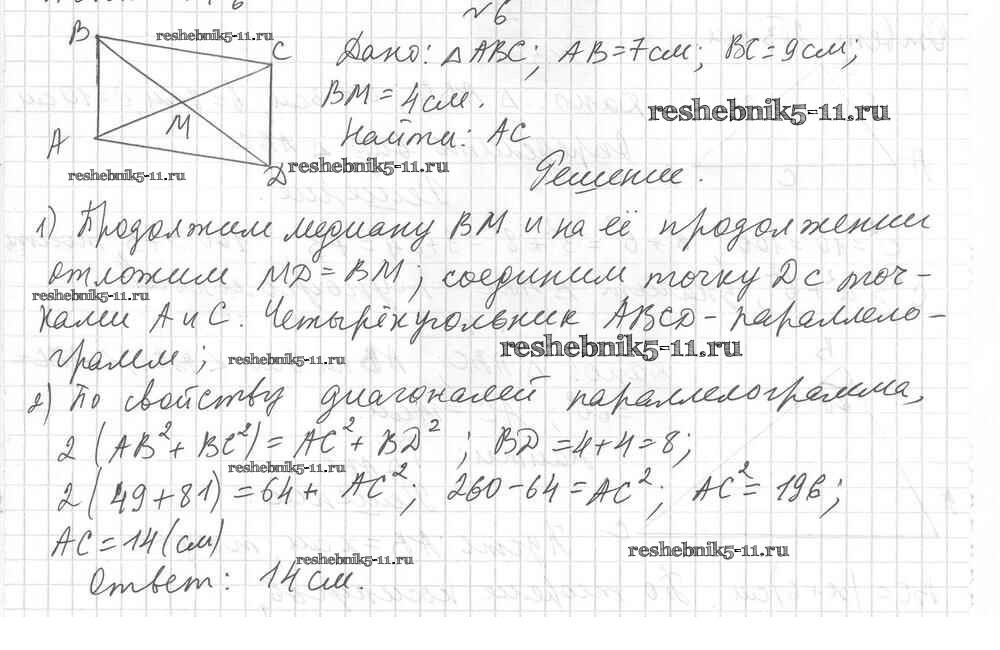 №6
reshebnik5-11.ru
B
C
Дано: △ABC; AB=7см; BC=9см;
BM=4см.
reshebnik5-11.ru
M
Найти: AC
A
D
reshebnik5-11.ru
reshebnik5-11.ru
Решение.
1) Продолжим медиану BM и на её продолжении
отложим MD=BM; соединим точку D с точ-
reshebnik5-11.ru
ками A и C. Четырёхугольник ABCD - параллело-
грамм;
reshebnik5-11.ru
reshebnik5-11.ru
2) По свойству диагоналей параллелограмма,
2(AB²+BC²)=AC²+BD²; BD=4+4=8;
reshebnik5-11.ru
2(49+81)=64+AC²; 260-64=AC²; AC²=196;
AC=14(см)
reshebnik5-11.ru
reshebnik5-11.ru
Ответ: 14см.